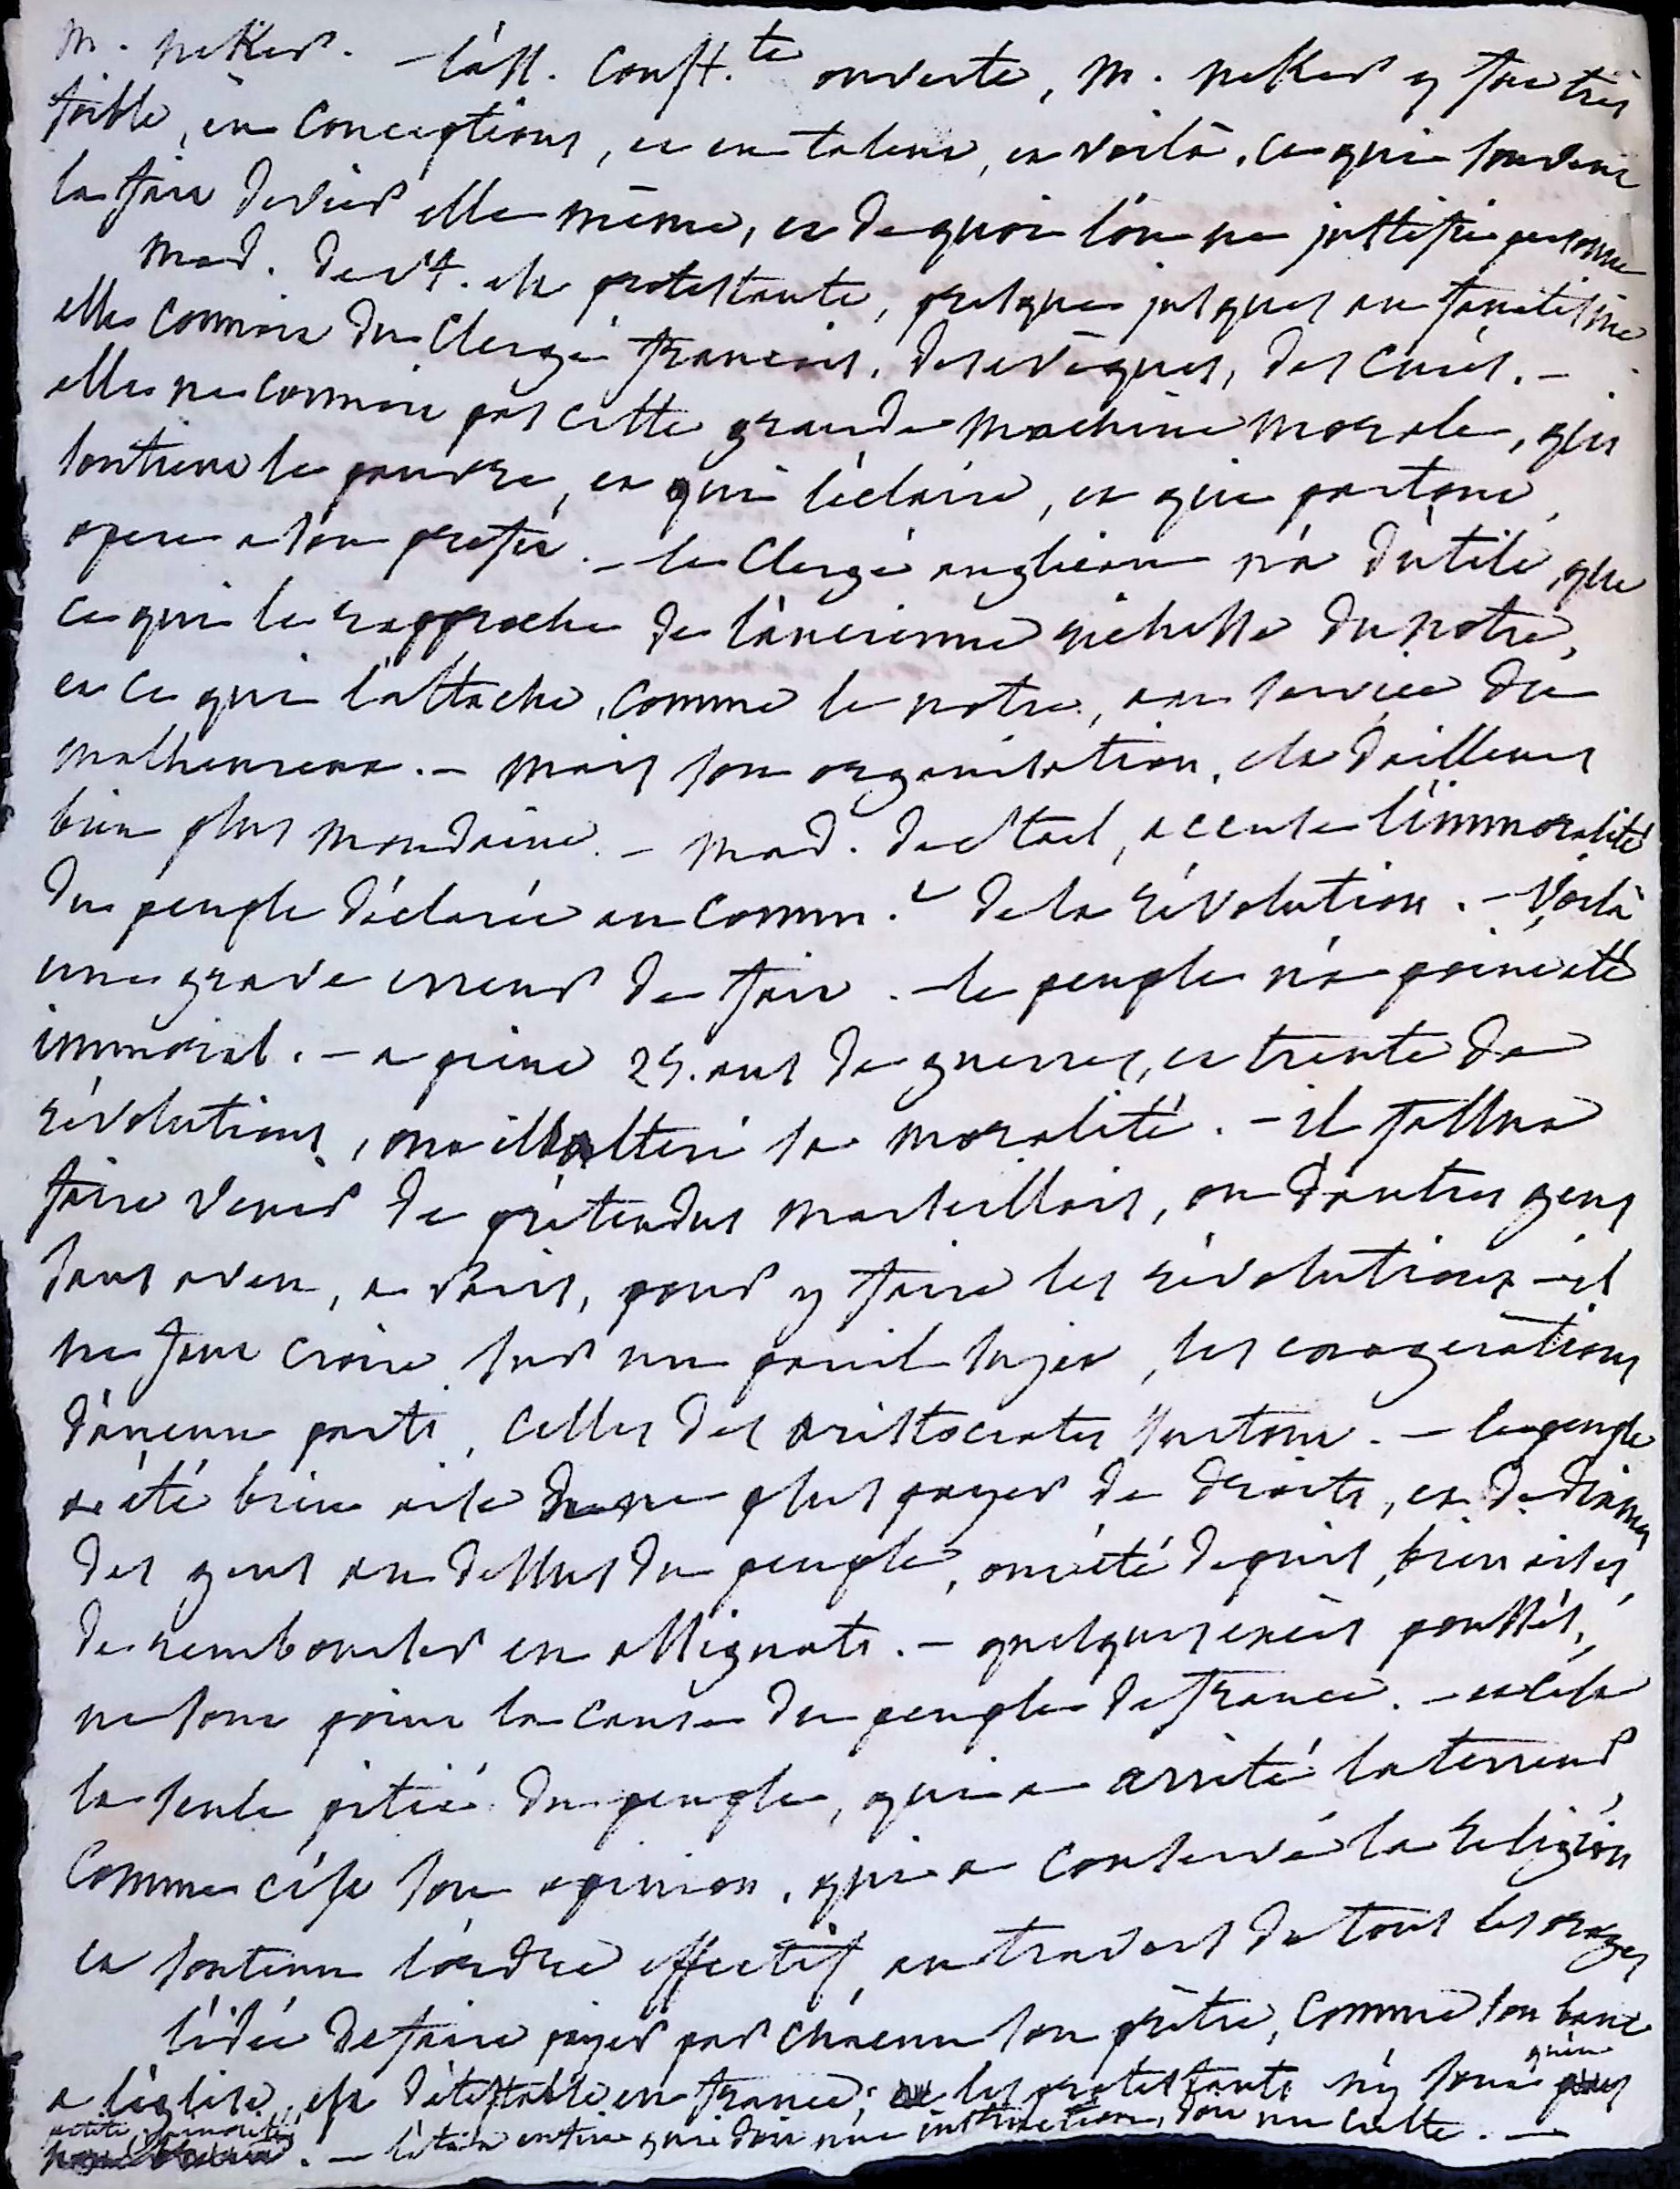 M. neKer. – l'ass. const.te ouverte, M. neKer y fut très
foible, en conceptions, et en talens, et voilà, ce qui souvent
la fait dévier elle même, et de quoi l'on ne justifie personne
Mad. de st. est protestante, presques jusques au fanatisme
elle connoit du Clergé françois, des evêques, des curés. –
elle ne connoit pas cette grande machine morale, qui
soutient le pauvre, et qui l'éclaire, et qui partout,
opere a son profit. – le Clergé anglican n'a d'utile, que
ce qui le rapproche de l'ancienne richesse du notre,
et ce qui l'attache, comme le notre, au service du
malheureux. – mais son organisation, est d'ailleurs
bien plus mondaine. – Mad. de stael, accuse l'immoralité
du peuple déclarée au comm.t de la révolution. – Voilà
une grave erreur de fait. – le peuple n'a point été
immoral. – a peine 25. ans de guerres, et trente de
révolutions, ont ils altéré sa moralité. – il fallut
faire venir de prétendus marseillois, ou d'autres gens
sans aveu, a Paris, pour y faire les révolutions – il
ne faut croire sur un pareil sujet, les exagerations
d'aucun parti, celles des aristocrates surtout. – le peuple
a été bien aise de ne plus payer de droits, et de dixmes
des gens au dessus du peuple, ont été depuis, bien aises,
de rembourser en assignats. – quelques excès poussés,
ne sont point la cause du peuple de france. – et c'est
la seule pitié du peuple, qui a arrêté la terreur,
comme c'est son opinion, qui a conservé la religion
et soutenu l'ordre effectif, au travers de tous les orages
l'idée de faire payer par chacun son prêtre, comme son banc
a l'église, est détestable en france; les protestants n'y sont qu'en
petite minorité. – l'état entier qui doit une instruction, doit un culte. –